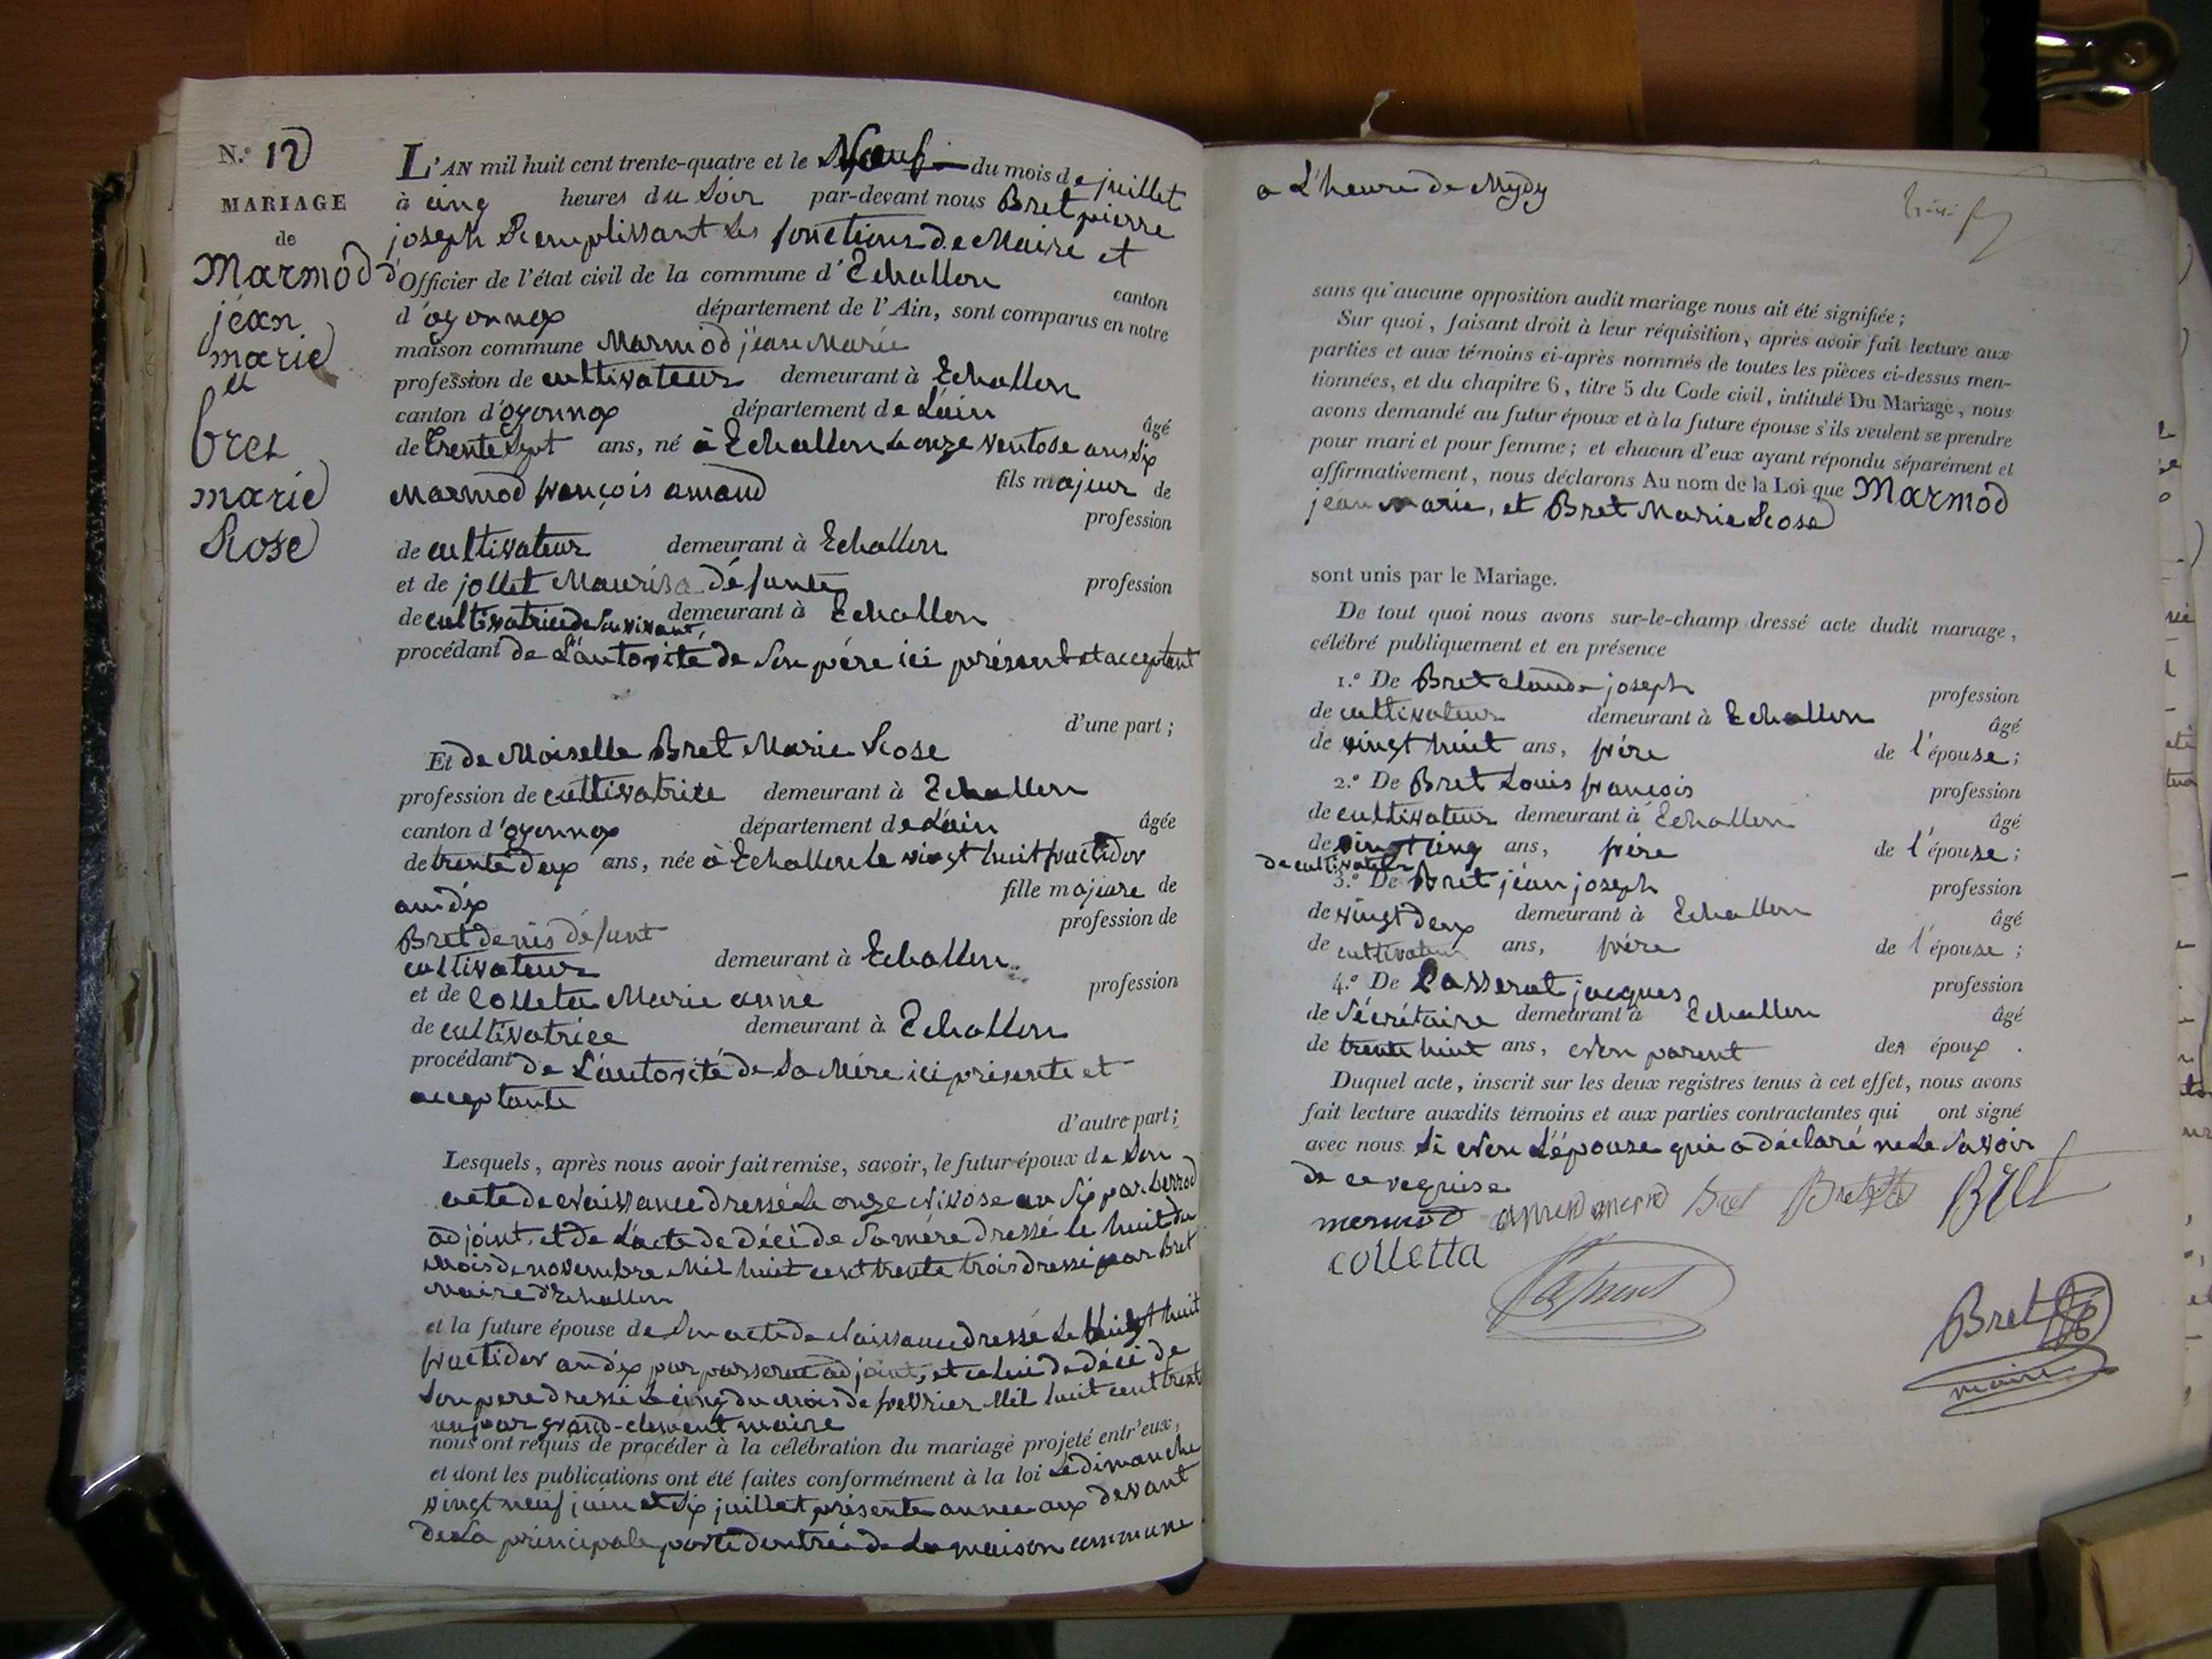 N.° 12
MARIAGE
de
Marmod
jéan
marie
et
bret
marie
Rose
L'AN mil huit cent trente-quatre et le Neuf du mois de juillet
à cinq heures du Soir par-devant nous Bret pierre
joseph Remplissant Les fonctions de Maire et
d'Officier de l'état civil de la commune d'Echallon
canton
d'oyonnax département de l'Ain, sont comparus en notre
maison commune Marmod jéan Marie
profession de cultivateur demeurant à Echallon
canton d'oyonnax département de L'ain
âgé
de trente Sept ans, né à Echallon Le onze ventose ans Six
fils majeur de
Marmod françois amand
profession
de cultivateur demeurant à Echallon
et de jollet Maurisa défunte profession
de cultivatrice de Son vivant, demeurant à Echallon
procédant de L'autorité de Son pére ici présent et acceptant
d'une part ;
Et de Moiselle Bret Marie Rose
profession de cultivatrice demeurant à Echallon
canton d'oyonnax département de L'ain âgée
de trente deux ans, née à Echallon le vingt huit fructidor
an dix fille majeure de
Bret denis défunt profession de
cultivateur demeurant à Echallon
et de Colleta Marie anne profession
de cultivatrice demeurant à Echallon
procédant de L'autorité de Sa Mére ici présente et
acceptante
d'autre part ;
Lesquels, après nous avoir fait remise, savoir, le futur époux de Son
acte de Naissance dressé Le onze Nivose an Six par
adjoint, et de L'acte de déci de Sa mére dressé le huit du
mois de novembre Mil huit cent trente trois dressé par Bret
Maire d'Echallon
et la future épouse de Son acte de Naissance dressé Le vingt huit
fructidor an dix par passerat adjoint, et celui de déci de
Son pere dressé Le cinq du mois de fevrier Mil huit cent trente
un par grand-clement maire
nous ont requis de procéder à la célébration du mariage projeté entr'eux,
et dont les publications ont été faites conformément à la loi Le dimanche
vingt neuf juin et Six juillet présente année aux devant
de La principale porte d'entrée de La maison commune
a L'heure de Mydy
sans qu'aucune opposition audit mariage nous ait été signifiée ;
Sur quoi, faisant droit à leur réquisition, après avoir fait lecture aux
parties et aux témoins ci-après nommés de toutes les pièces ci-dessus men-
tionnées, et du chapitre 6, titre 5 du Code civil, intitulé Du Mariage, nous
avons demandé au futur époux et à la future épouse s'ils veulent se prendre
pour mari et pour femme ; et chacun d'eux ayant répondu séparément et
affirmativement, nous déclarons Au nom de la Loi que Marmod
jean marie, et Bret Marie Rose
sont unis par le Mariage.
De tout quoi nous avons sur-le-champ dressé acte dudit mariage,
célébré publiquement et en présence
1.° De Bret claude joseph profession
de cultivateur demeurant à Echallon âgé
de vingt huit ans, frére de l'épouse ;
2.° De Bret Louis françois profession
de cultivateur demeurant à Echallon âgé
de vingt cinq ans, frére de l'épouse ;
de cultivateur
3.° De Bret jéan joseph profession
de vingt deux demeurant à Echallon âgé
de cultivateur ans, frére de l'épouse ;
4.° De Passerat jacques profession
de Sécrétaire demeurant à Echallon âgé
de trente huit ans, Non parent des époux .
Duquel acte, inscrit sur les deux registres tenus à cet effet, nous avons
fait lecture auxdits témoins et aux parties contractantes qui ont signé
avec nous Si Non L'épouse qui a déclaré ne Le Savoir
de ce requise
mermod Bret Bret
colletta
Bret
maire